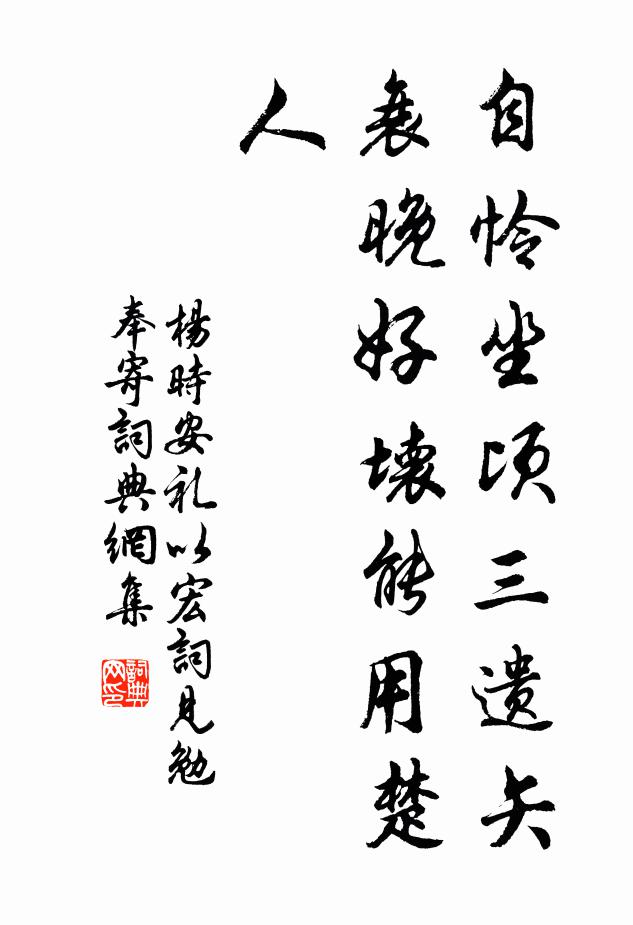 自怜坐顷三遗矢
衰晚好壞能用楚
人
楊時安礼以宏詞見勉
奉寄詞典網集
詞典网印